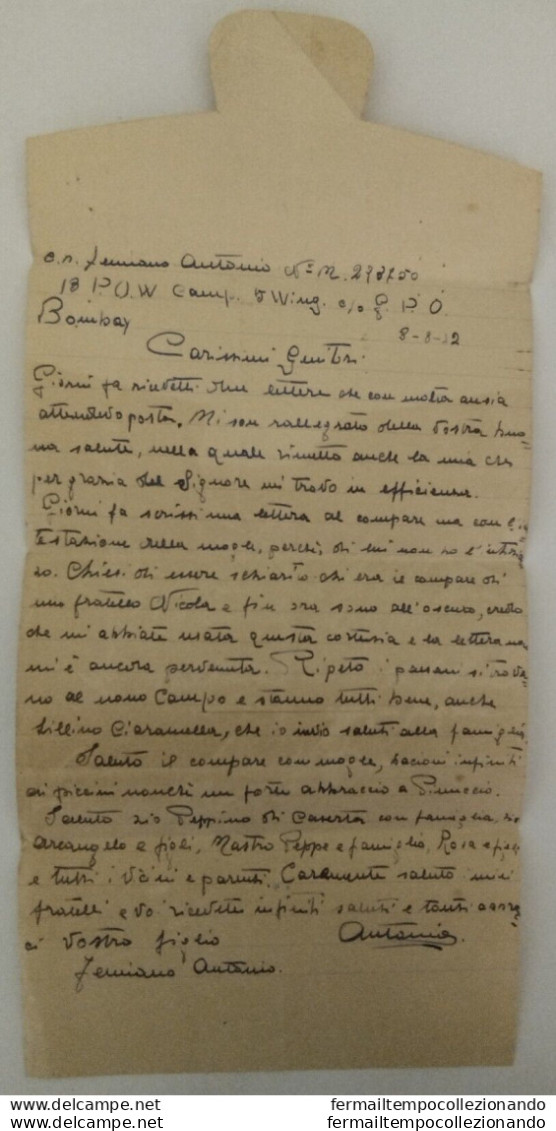 Antonio N° M. 278750
18 P.O.W Camp. 5 Wing. c/o G. P. O
Bombay
8-8-42
Carissimi Genitori
Giorni fa ricevetti due lettere che con molta ansia
attendevo posta. Mi son rallegrato della vostra buo=
na salute, nella quale rimetto anche la mia che
per grazia del Signore mi trovo in efficienza.
Giorni fa scrissi una lettera al compare ma con l'in
testazione della moglie, perchè di lui non so l'indiriz
zo. Chiesi di essere schiarito chi era il compare di
mio fratello Nicola e fin ora sono all'oscuro, credo
che mi abbiate usata questa cortesia e la lettera non
mi è ancora pervenuta. Ripeto i paesani si trova=
no al nono Campo e stanno tutti bene, anche
Lillino Ciaramella, che io invio saluti alla famiglia.
Saluto il compare con moglie, bacioni infiniti
ai piccini nonchè un forte abbraccio a Pinuccio.
Saluto zio Peppino di Caserta con famiglia, zio
Arcangelo e figli, Mastro Peppe e famiglia, Rosa e figli
e tutti i vicini e parenti. Caramente saluto miei
fratelli e voi ricevete infiniti saluti e tanti abbra=
ci vostro figlio Antonio
Antonio.
fermailtempocollezionando fermailtempocollezionando
fermailtempocollezionando fermailtempocollezionando